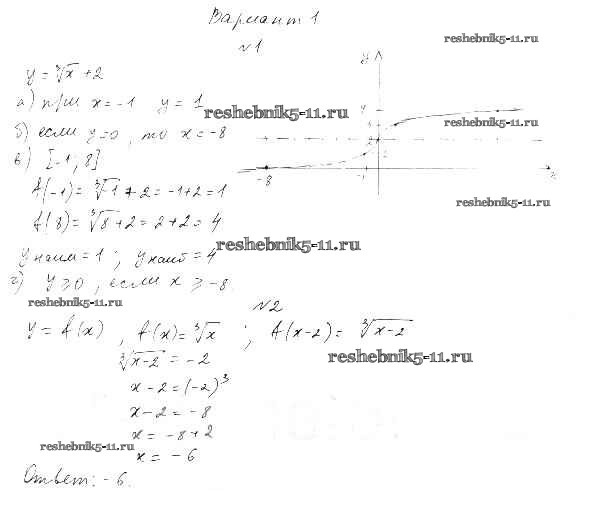 Вариант 1
reshebnik5-11.ru
№1
y
y = ∛x + 2
а) при x = -1 y = 1
4
reshebnik5-11.ru
reshebnik5-11.ru
3
б) если y = 0, то x = -8
2
в) [-1; 8]
-8
-1
x
f(-1) = ∛-1 + 2 = -1 + 2 = 1
reshebnik5-11.ru
f(8) = ∛8 + 2 = 2 + 2 = 4
reshebnik5-11.ru
y наим = 1; y наиб = 4
г) y ≥ 0, если x ≥ -8
reshebnik5-11.ru
№2
y = f(x), f(x) = ∛x; f(x-2) = ∛x-2
∛x-2 = -2
reshebnik5-11.ru
x - 2 = (-2)³
x - 2 = -8
x = -8 + 2
reshebnik5-11.ru
x = -6
Ответ: -6.